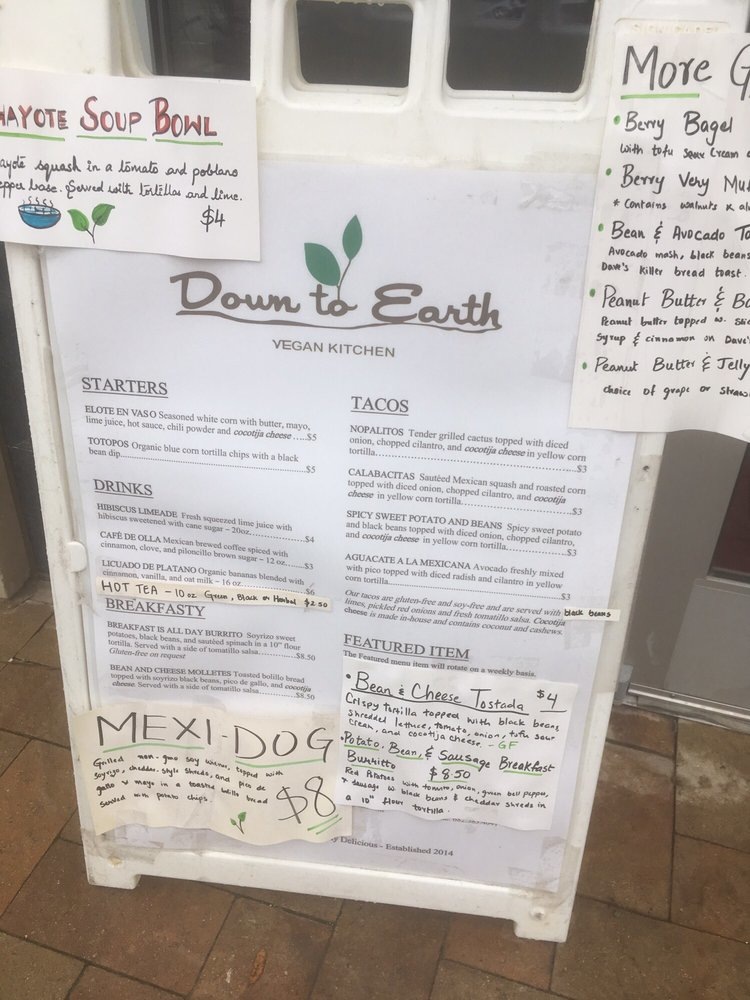 HAYOTE SOUP BOWL
ayote squash in a tomato and poblano
epper base. Served with tortillas and lime.
$4
More G
• Berry Bagel
with tofu sour cream
• Berry Very Mu
* Contains walnuts & al
• Bean & Avocado To
Avocado mash, black beans
Dave's killer bread toast.
• Peanut Butter & Ba
Peanut butter topped w. slic
Syrup & cinnamon on Dave'
• Peanut Butter & Jelly
choice of grape or straw
Down to Earth
VEGAN KITCHEN
STARTERS
ELOTE EN VASO Seasoned white corn with butter, mayo,
lime juice, hot sauce, chili powder and cocotija cheese .....$5
TOTOPOS Organic blue corn tortilla chips with a black
bean dip..........$5
DRINKS
HIBISCUS LIMEADE Fresh squeezed lime juice with
hibiscus sweetened with cane sugar – 20oz..........$4
CAFÉ DE OLLA Mexican brewed coffee spiced with
cinnamon, clove, and piloncillo brown sugar – 12 oz......$3
LICUADO DE PLATANO Organic bananas blended with
cinnamon, vanilla, and oat milk – 16 oz..........$6
HOT TEA – 10 oz Green, Black or Herbal $2.50
BREAKFASTY
BREAKFAST IS ALL DAY BURRITO Soyrizo sweet
potatoes, black beans, and sautéed spinach in a 10" flour
tortilla. Served with a side of tomatillo salsa..........$8.50
Gluten-free on request
BEAN AND CHEESE MOLLETES Toasted bolillo bread
topped with soyrizo black beans, pico de gallo, and cocotija
cheese. Served with a side of tomatillo salsa..........$8.50
MEXI-DOG
Grilled non-gmo soy wiener, topped with
soyrizo, cheddar-style shreds, and pico de
gallo & mayo in a toasted bolillo bread
served with potato chips.
$8
TACOS
NOPALITOS Tender grilled cactus topped with diced
onion, chopped cilantro, and cocotija cheese in yellow corn
tortilla..........$3
CALABACITAS Sautéed Mexican squash and roasted corn
topped with diced onion, chopped cilantro, and cocotija
cheese in yellow corn tortilla..........$3
SPICY SWEET POTATO AND BEANS Spicy sweet potato
and black beans topped with diced onion, chopped cilantro,
and cocotija cheese in yellow corn tortilla..........$3
AGUACATE A LA MEXICANA Avocado freshly mixed
with pico topped with diced radish and cilantro in yellow
corn tortilla..........$3
Our tacos are gluten-free and soy-free and are served with black beans
limes, pickled red onions and fresh tomatillo salsa. Cocotija
cheese is made in-house and contains coconut and cashews.
FEATURED ITEM
The Featured menu item will rotate on a weekly basis.
• Bean & Cheese Tostada $4
Crispy tortilla topped with black beans,
shredded lettuce, tomato, onion, tofu sour
cream, and cocotija cheese. - GF
• Potato, Bean, & Sausage Breakfast
Burritto $8.50
Red Potatoes with tomato, onion, green bell pepper,
& sausage w. black beans & cheddar shreds in
a 10" flour tortilla.
y Delicious - Established 2014